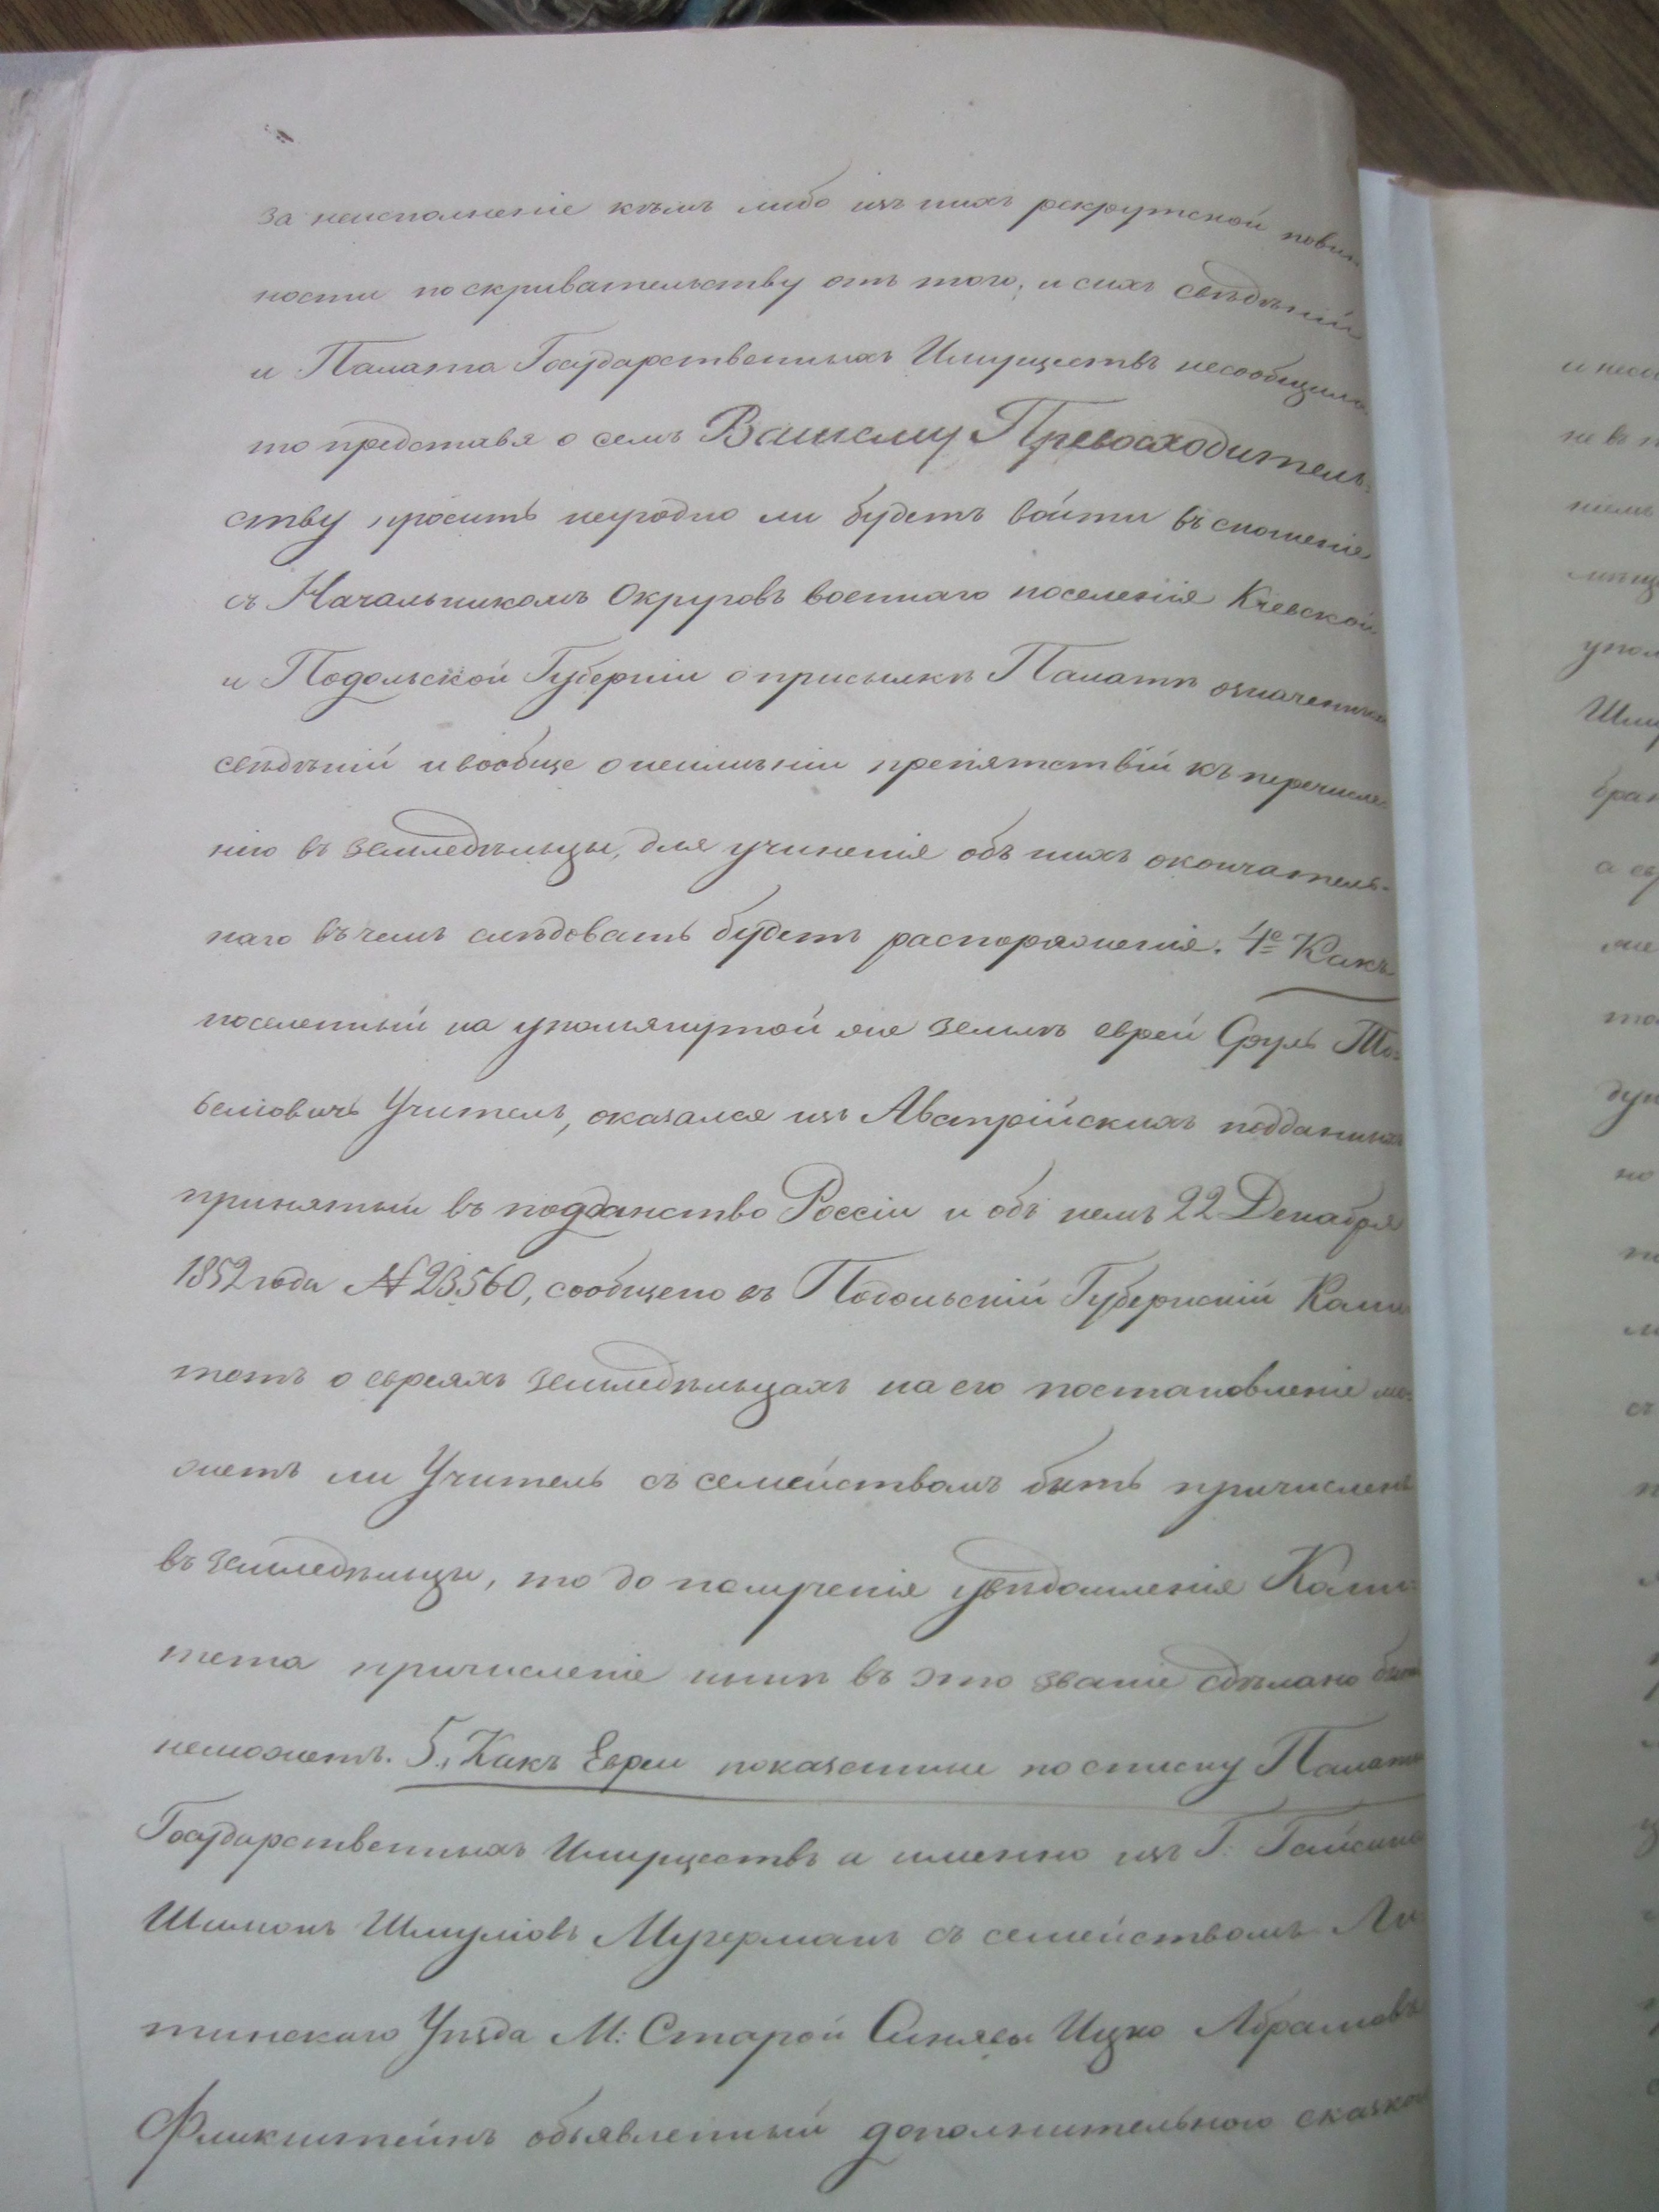 за неисполненіе кѣмъ либо изъ нихъ рекрутской повин
ности по скривательству отъ того, и сихъ свѣдѣній
и Палата Государственныхъ Имуществъ несообщила
то представя о семъ Вашему Превосходитель=
ству просить неугодно ли будетъ войти въ сношеніе
съ Начальникомъ Округовъ военнаго поселенія Кіевской
и Подольской Губерніи о присылкѣ Палатѣ означенныхъ
свѣдѣній и вообще о неимѣніи препятствій къ перечисле=
нію въ земледѣльцы, для учиненія объ нихъ окончатель=
наго въ чемъ слѣдовать будетъ распоряженія. 4е Какъ
поселенный на упомянутой же землѣ еврей Сруль То=
беліовичъ Учитель, оказался изъ Австрійскихъ подданныхъ
принятый въ подданство Россіи и объ немъ 22 Декабря
1852 года № 23560, сообщено въ Подольскій Губернскій Коми
тетъ о евреяхъ земледѣльцахъ на его постановленіе мо=
жетъ ли Учитель съ семействомъ быть причисленъ
въ земледѣльцы, то до полученія увѣдомленія Коми=
тета причисленіе нынѣ въ это званіе сдѣлано быть
неможетъ. 5., Какъ Евреи показанные по списку Палаты
Государственныхъ Имуществъ а именно изъ Г. Гайсина
Шимонъ Шмуліовъ Мучерманъ съ семействомъ Ли
тинскаго Уѣзда М: Старой Синявы Ицко Абрамовъ
Фликштейнъ объявленный дополнительною сказкою